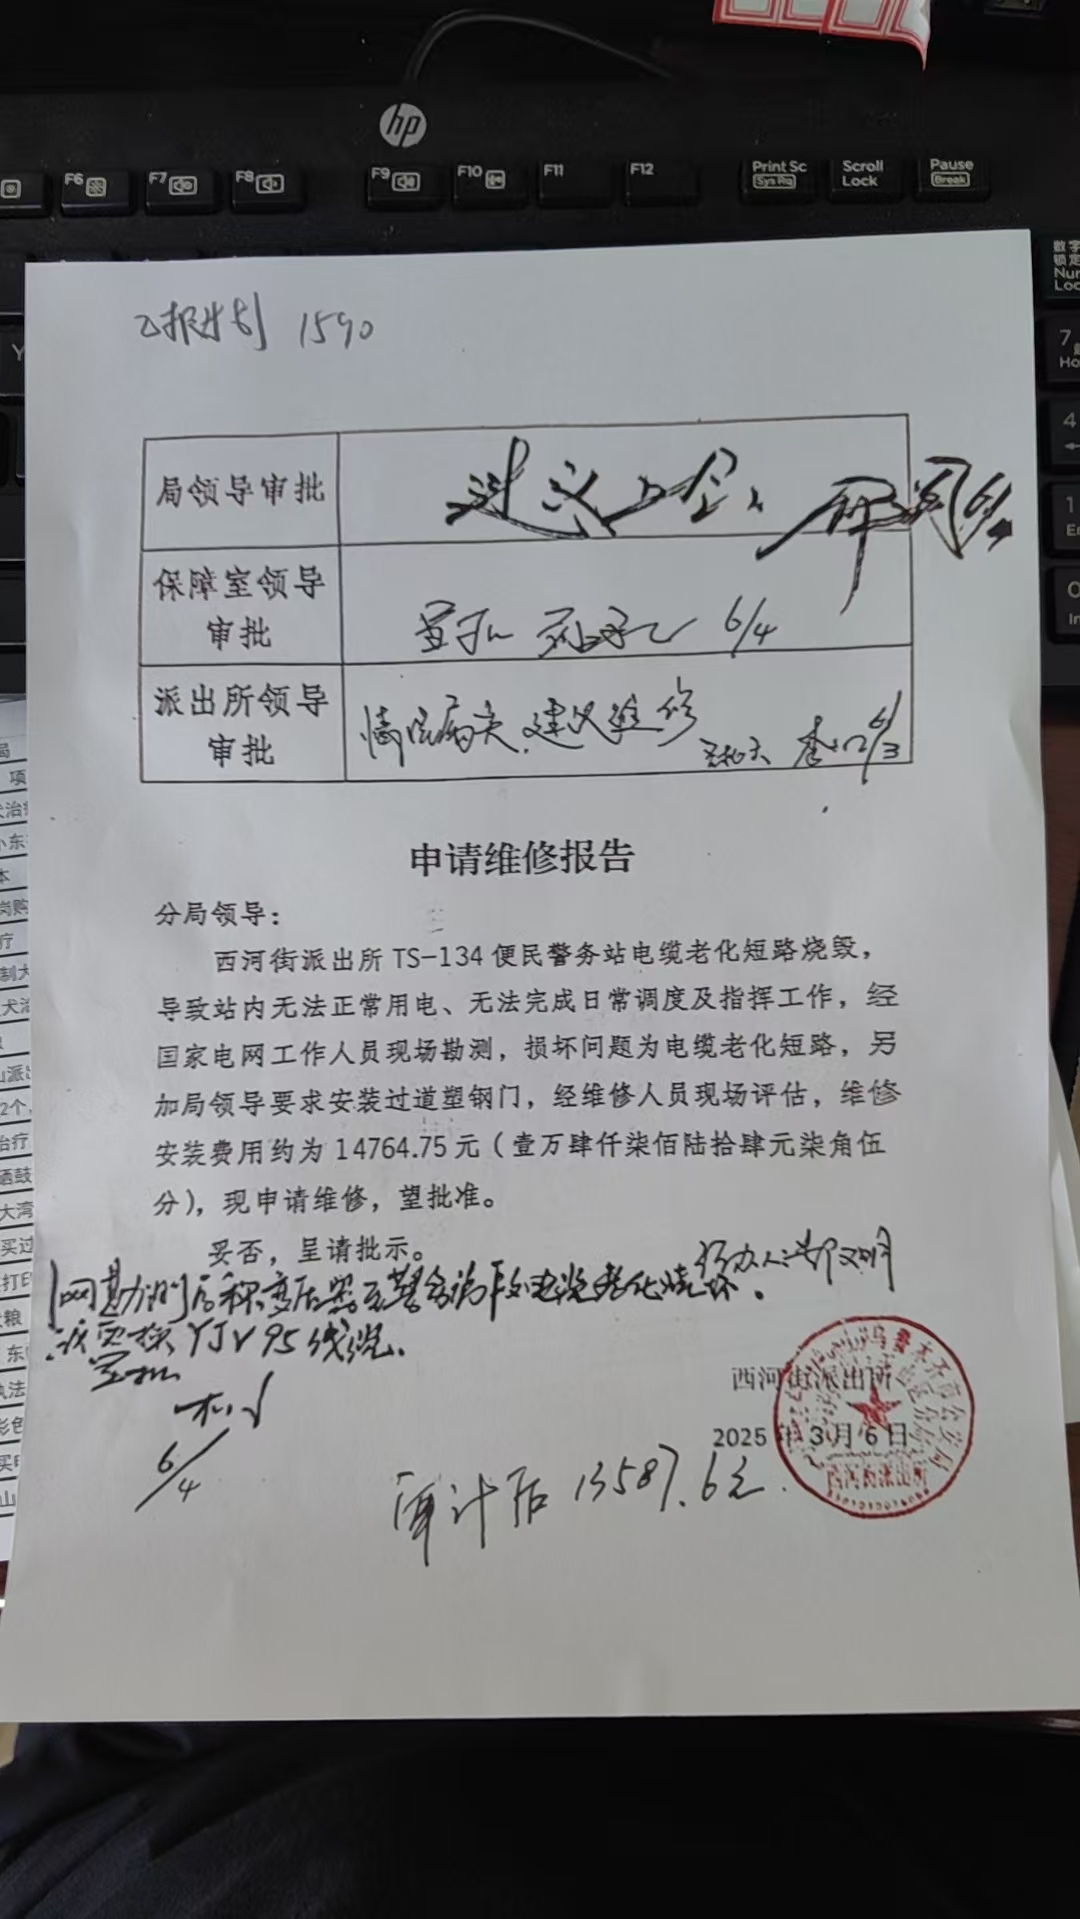 hp
F6
F7
F8
F9
F10
F11
F12
Print Sc
Sys Rq
Scroll
Lock
Pause
Break
数字
锁定
Num
Loc
7
4
1
0
已报计划 1590
局领导审批
建议上会
保障室领导
审批
6/4
派出所领导
审批
情况属实,建议维修
6/3
申请维修报告
分局领导:
西河街派出所 TS-134 便民警务站电缆老化短路烧毁,
导致站内无法正常用电、无法完成日常调度及指挥工作,经
国家电网工作人员现场勘测,损坏问题为电缆老化短路,另
加局领导要求安装过道塑钢门,经维修人员现场评估,维修
安装费用约为 14764.75 元(壹万肆仟柒佰陆拾肆元柒角伍
分),现申请维修,望批准。
妥否,呈请批示。
经办人:
网勘测后称变压器至警务站段电缆老化烧坏。
该更换 YJV95线缆.
6/4
西河街派出所
2025 年 3 月 6 日
西河街派出所
审计后 13587.6元.